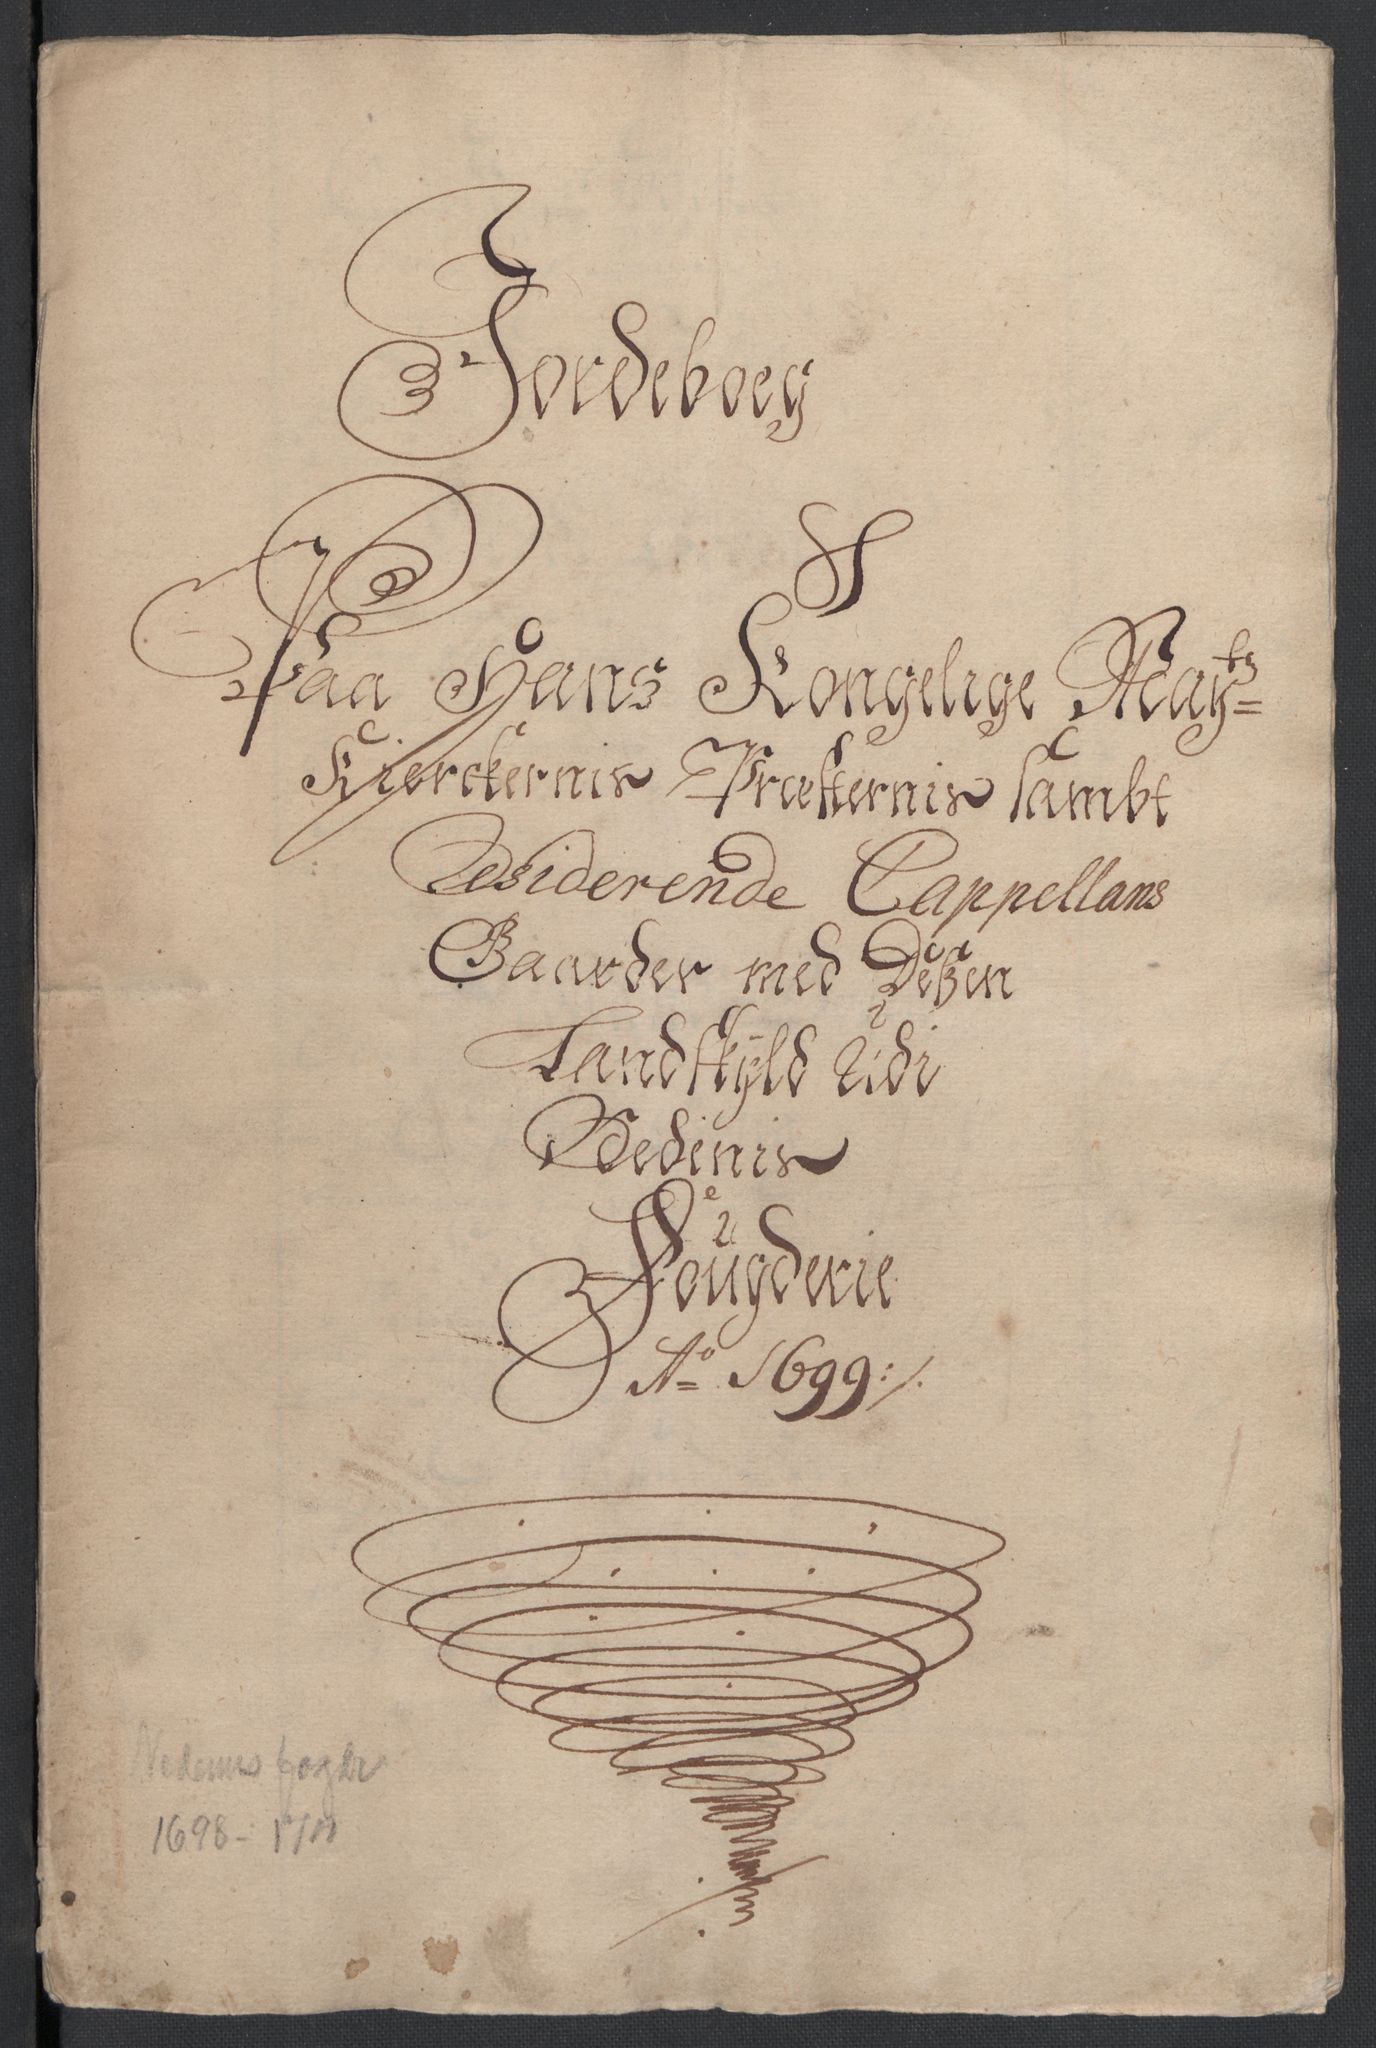 Jordeboeg
Paa Hans Kongelige Mayts
Kierckernis Præsternis sambt
Residerende Cappellans
Gaarder med Deßen
Landskyld udi
Nedenis
Fougderie
Ao 1699:/.
Nedenes fogderi
1698-